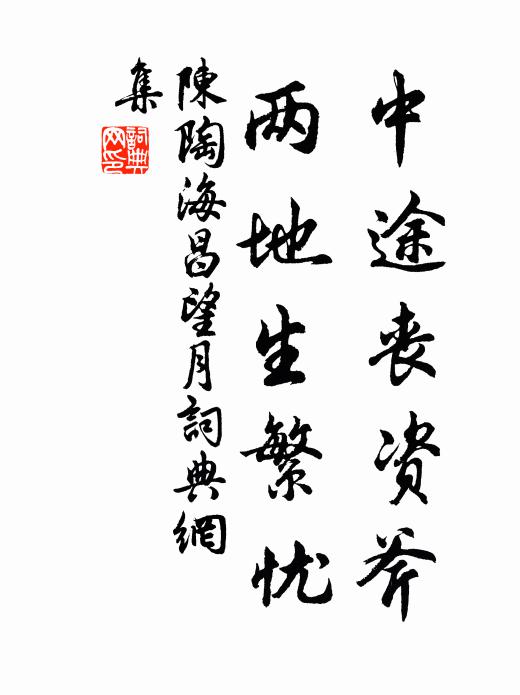 中途丧资斧
两地生繁忧
陳陶海昌望月詞典網
集
詞典
网印